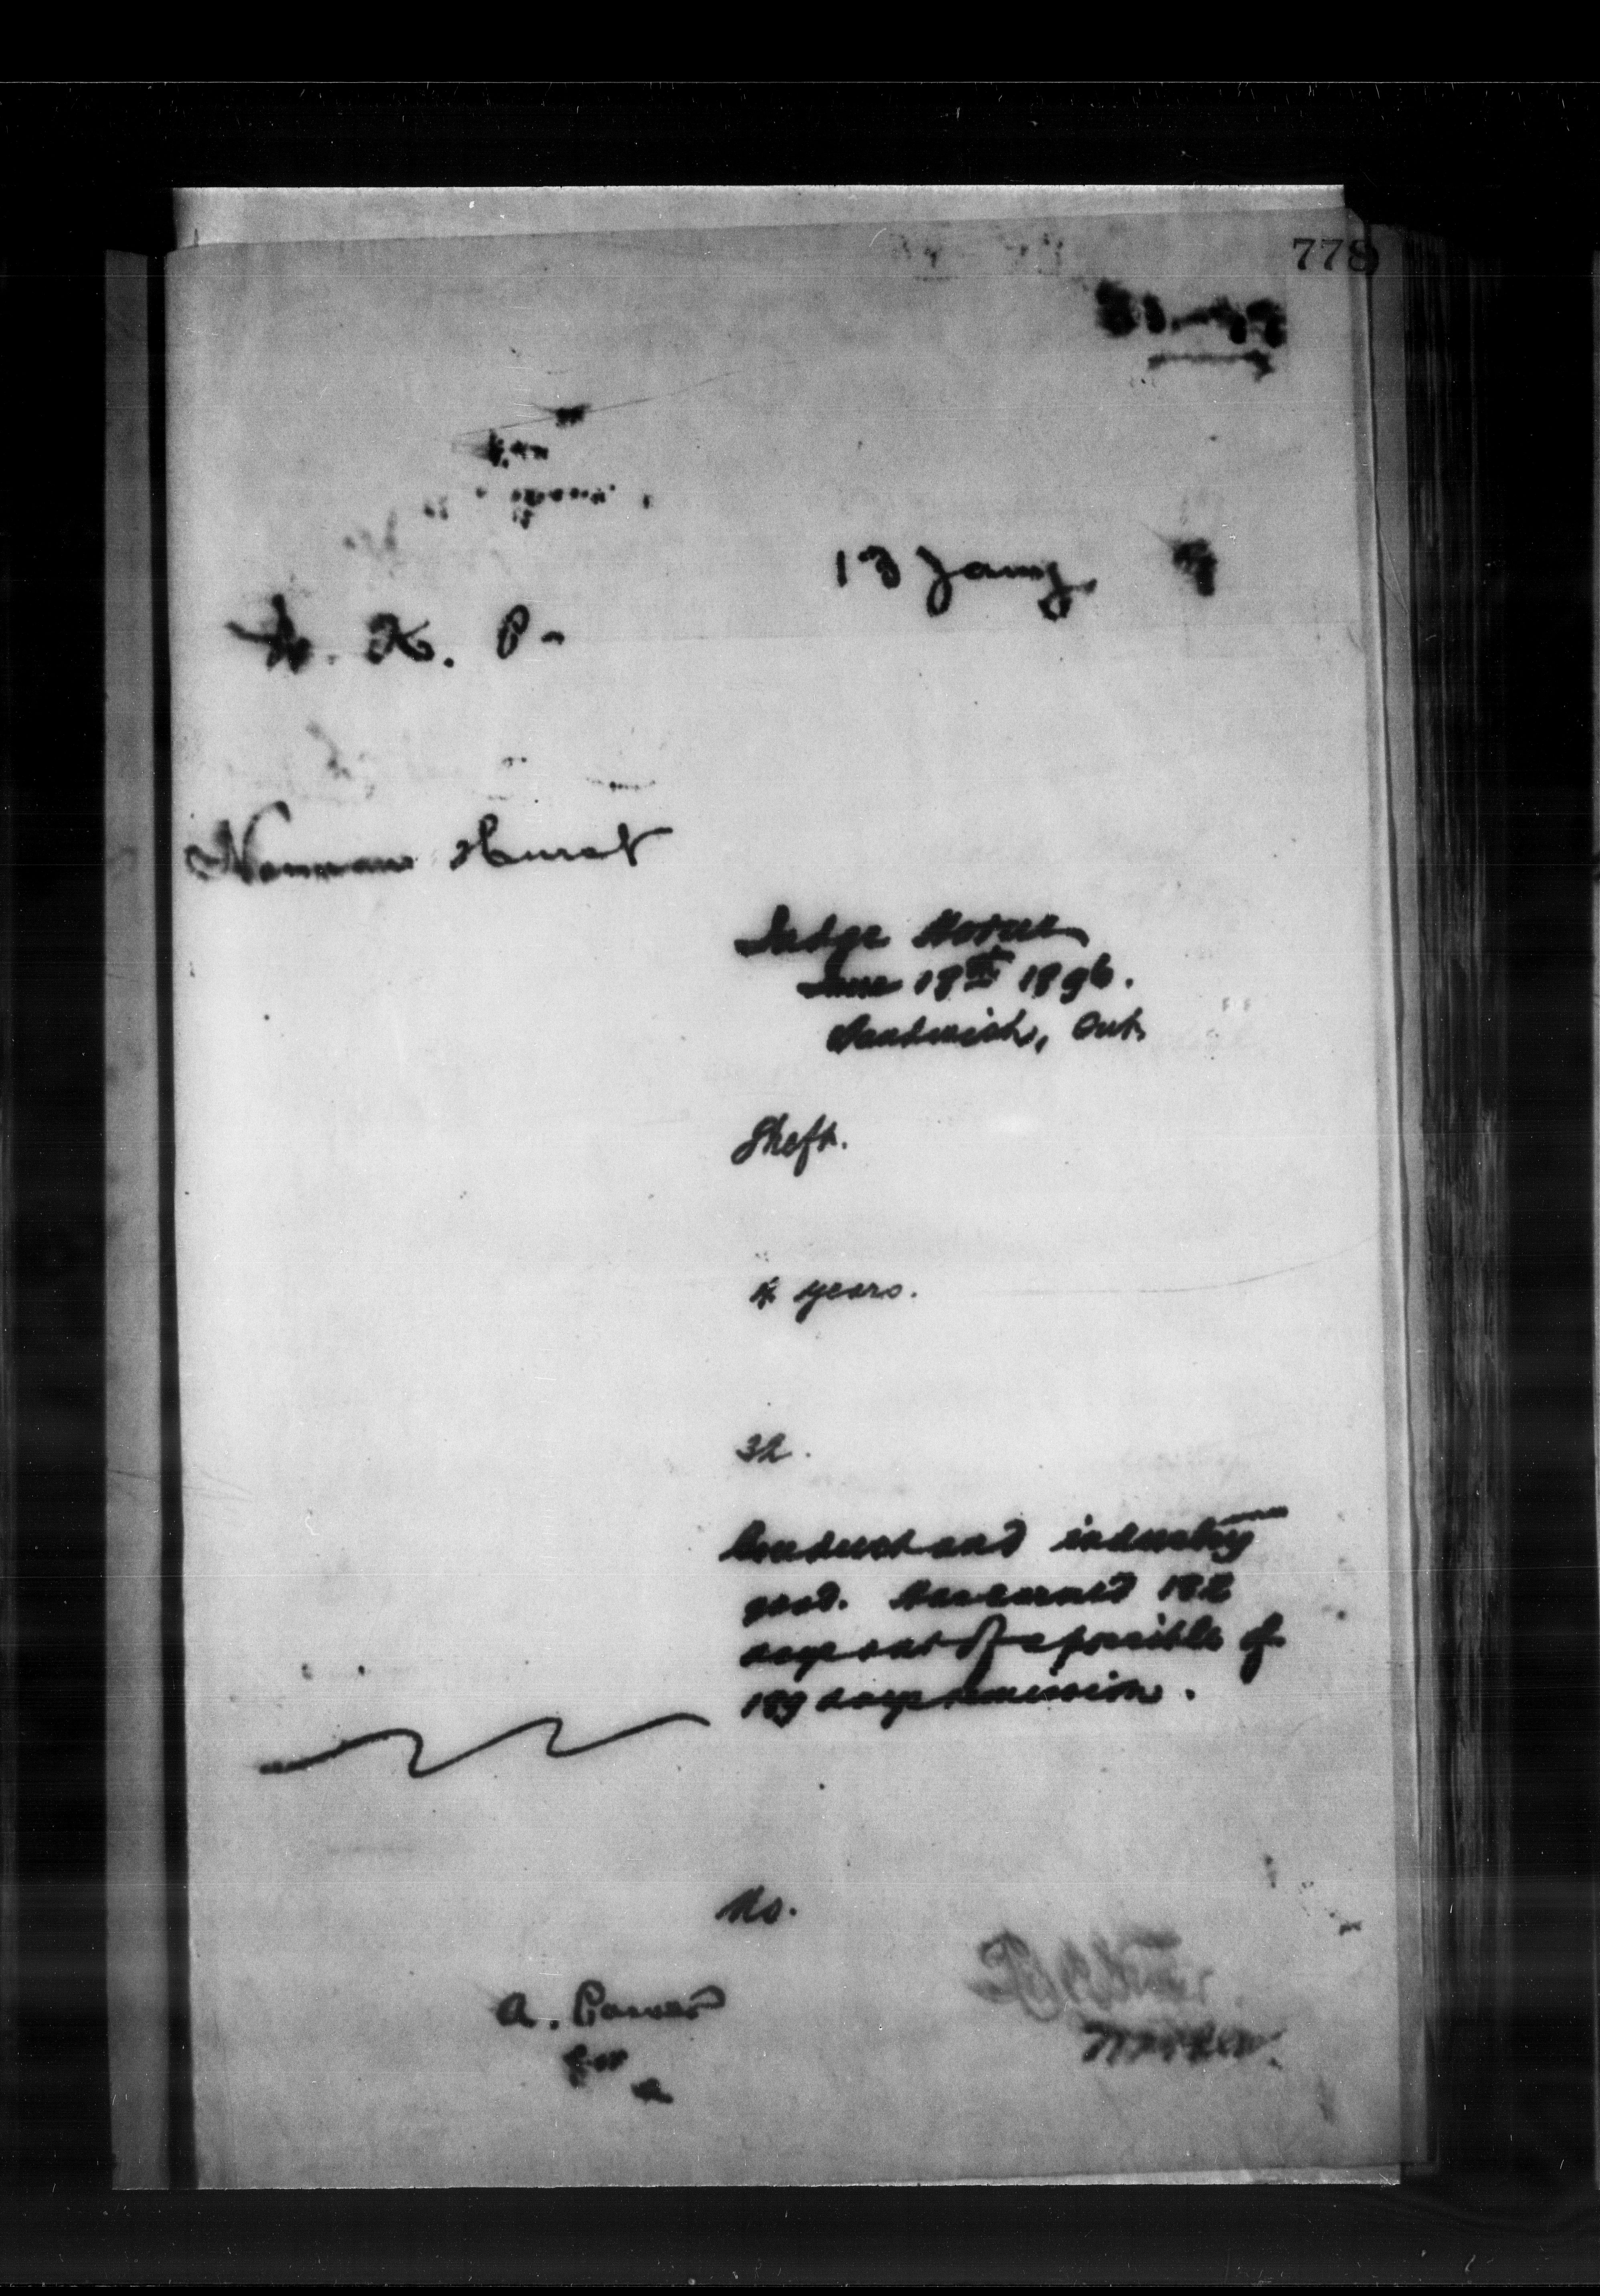 778
13 Jany. 99
K. P.
Norman Hurst
Judge Horne
June 18th 1896.
Sandwich, Ont.
Theft.
4 years.
32.
Conduct and industry
good. Has earned 182
days out of a possible of
189 days remission.
No.
A.
Warden.